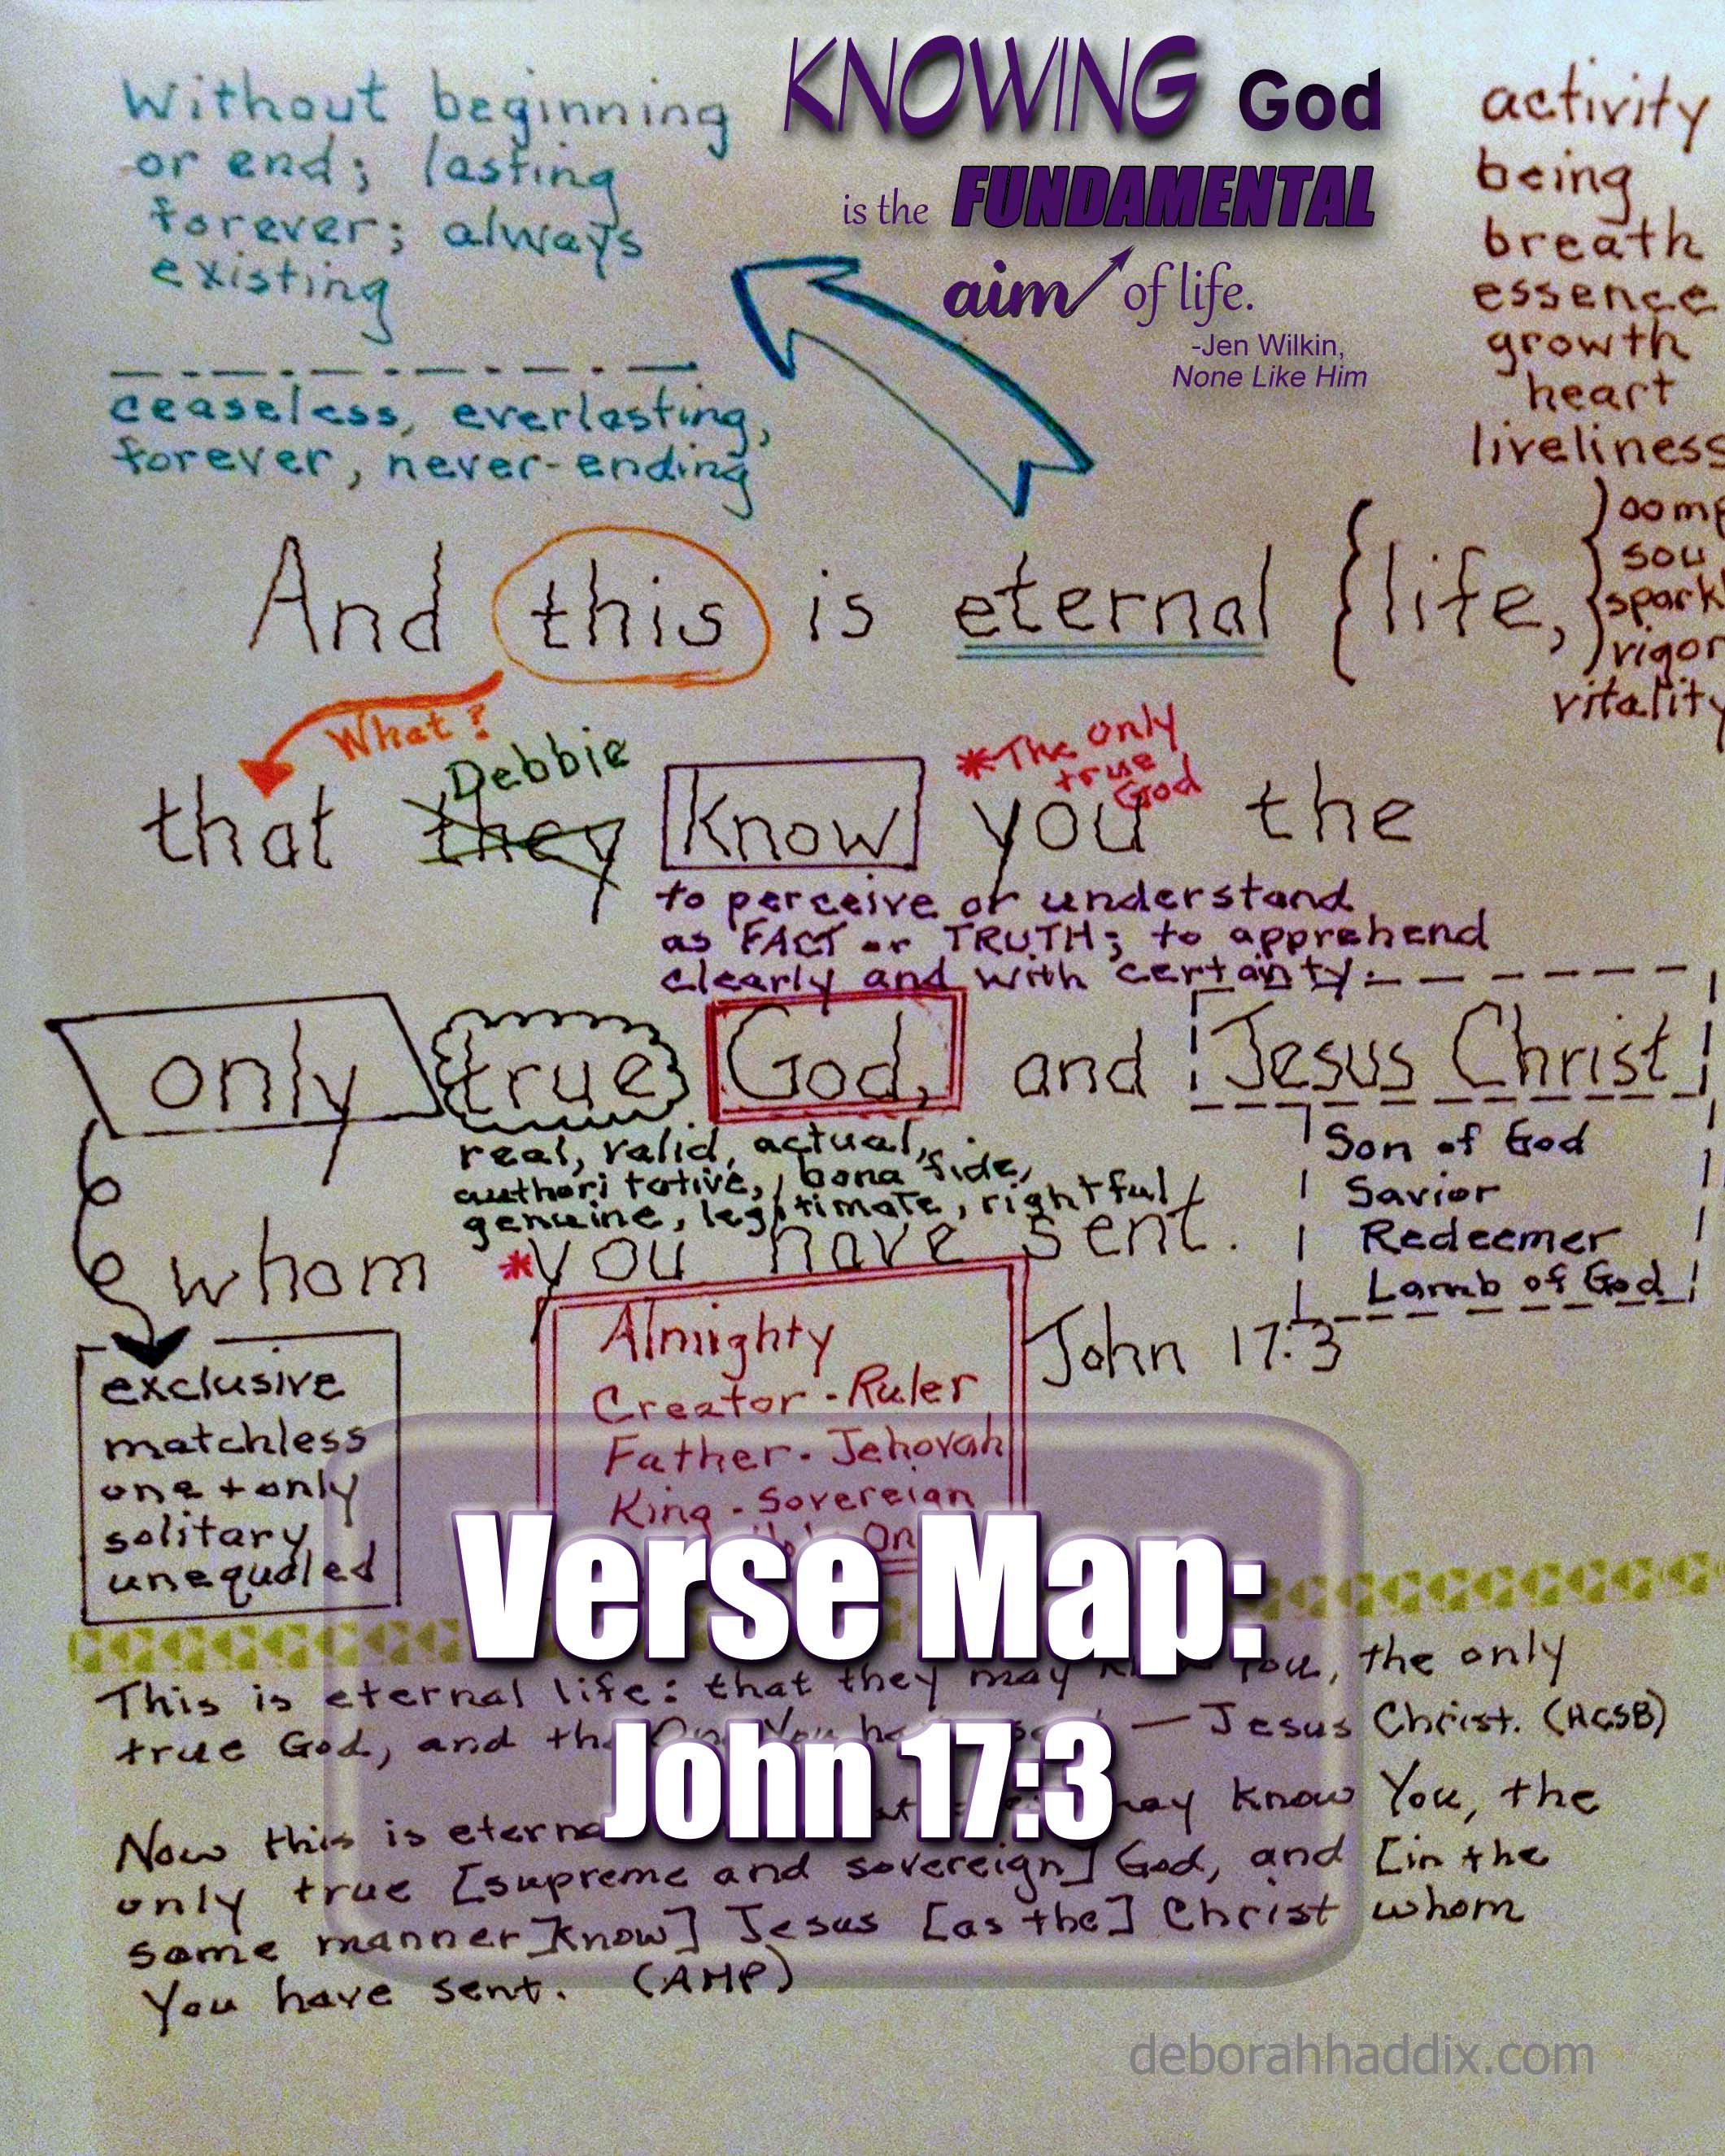 KNOWING God
is the FUNDAMENTAL
aim of life.
-Jen Wilkin,
None Like Him
Without beginning
or end; lasting
forever; always
existing
ceaseless, everlasting,
forever, never-ending
activity
being
breath
essence
growth
heart
liveliness
spark
vigor
vitality
And this is eternal {life,
What?
Debbie
*The only
true
God
that they know you the
to perceive or understand
as FACT or TRUTH; to apprehend
clearly and with certainty.
only true God, and Jesus Christ
real, valid, actual,
authoritative, bona fide,
genuine, legitimate, rightful
Son of God
Savior
Redeemer
Lamb of God
whom *you have sent.
John 17:3
exclusive
matchless
one + only
solitary
unequaled
Almighty
Creator - Ruler
Father - Jehovah
King - Sovereign
Verse Map:
John 17:3
This is eternal life: that they may You, the only
true God, and — Jesus Christ. (HCSB)
Now this is may know You, the
only true [supreme and sovereign] God, and [in the
same manner know] Jesus [as the] Christ whom
You have sent. (AMP)
deborahhaddix.com